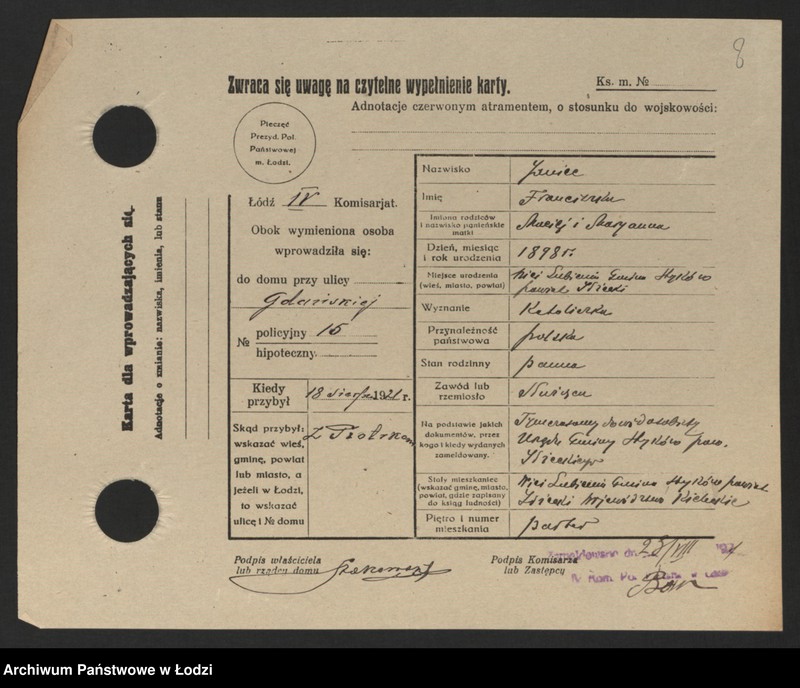 8
Zwraca się uwagę na czytelne wypełnienie karty.
Ks. m. №
Adnotacje czerwonym atramentem, o stosunku do wojskowości:
Pieczęć
Prezyd. Pol.
Państwowej
m. Łodzi.
Karta dla wprowadzających się.
Adnotacje o zmianie: nazwiska, imienia, lub stanu
Łódź IV Komisarjat.
Obok wymieniona osoba
wprowadziła się:
do domu przy ulicy
Gdańskiej
№ policyjny 16
hipoteczny
Kiedy
przybył
18 sierpnia 1921 r.
Skąd przybył:
wskazać wieś,
gminę, powiat
lub miasto, a
jeżeli w Łodzi,
to wskazać
ulicę i № domu
Z Piotrkowa
Nazwisko
Janiec
Imię
Franciszka
Imiona rodziców
i nazwisko panieńskie
matki
Maciej i Maryanna
Dzień, miesiąc
i rok urodzenia
1898 r.
Miejsce urodzenia
(wieś, miasto, powiat)
Wieś Lubienia Gmina Styków
powiat Iłżecki
Wyznanie
Katoliczka
Przynależność
państwowa
polska
Stan rodzinny
panna
Zawód lub
rzemiosło
Służąca
Na podstawie jakich
dokumentów, przez
kogo i kiedy wydanych
zameldowany.
Tymczasowy dowód osobisty
Urzędu Gminy Styków pow.
Iłżeckiego
Stały mieszkaniec
(wskazać gminę, miasto,
powiat, gdzie zapisany
do ksiąg ludności)
Wieś Lubienia Gmina Styków powiat
Iłżecki Województwo Kieleckie
Piętro i numer
mieszkania
parter
Podpis właściciela
lub rządcy domu
Podpis Komisarza
lub Zastępcy
Zameldowano dn. 23/VIII 1921
Archiwum Państwowe w Łodzi